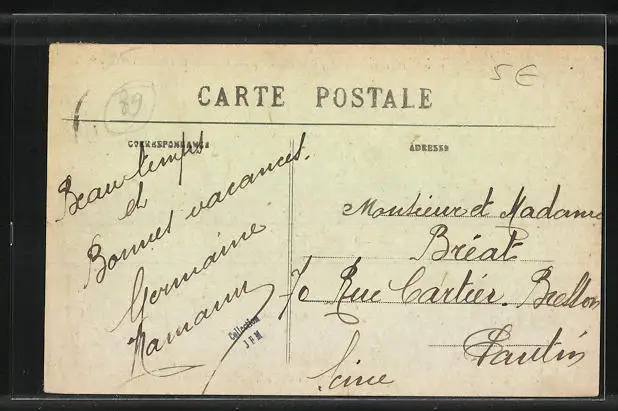 5€
89
CARTE POSTALE
CORRESPONDANCE
ADRESSE
Beau temps
et
Bonnes vacances.
Germaine
Hamann
Collection
JPM
Monsieur et Madame
Bréat
70 Rue Cartier. Bresson
Pantin
Seine